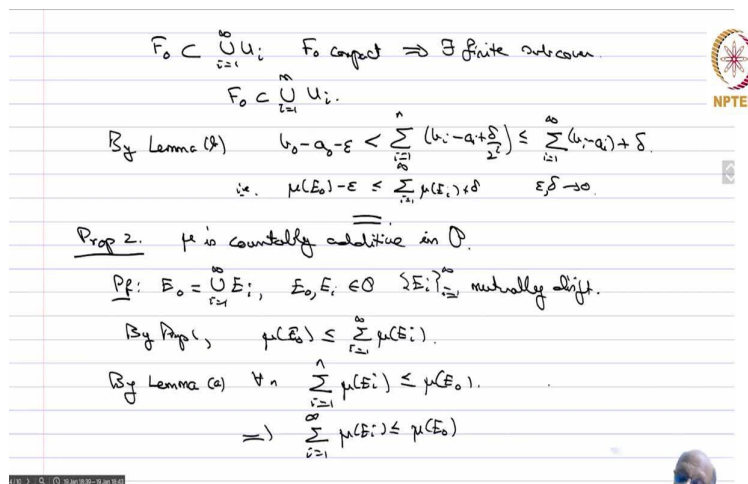 F₀ ⊂ ⋃_{i=1}^{∞} U_i   F₀ compact ⇒ ∃ finite subcover.
F₀ ⊂ ⋃_{i=1}^{n} U_i.
NPTE
By Lemma (b)   b₀-a₀-ε < ∑_{i=1}^{n} (b_i-a_i+δ/2^i) ≤ ∑_{i=1}^{∞} (b_i-a_i) + δ.
i.e. μ(E₀)-ε ≤ ∑_{i=1}^{∞} μ(E_i)+δ   ε,δ→0.
Prop 2. μ is countably additive in P.
Pf: E₀ = ⋃_{i=1}^{∞} E_i, E₀,E_i ∈ P {E_i}_{i=1}^{∞} mutually disjt.
By Prop 1, μ(E₀) ≤ ∑_{i=1}^{∞} μ(E_i).
By Lemma (a) ∀n ∑_{i=1}^{n} μ(E_i) ≤ μ(E₀).
⇒ ∑_{i=1}^{∞} μ(E_i) ≤ μ(E₀)